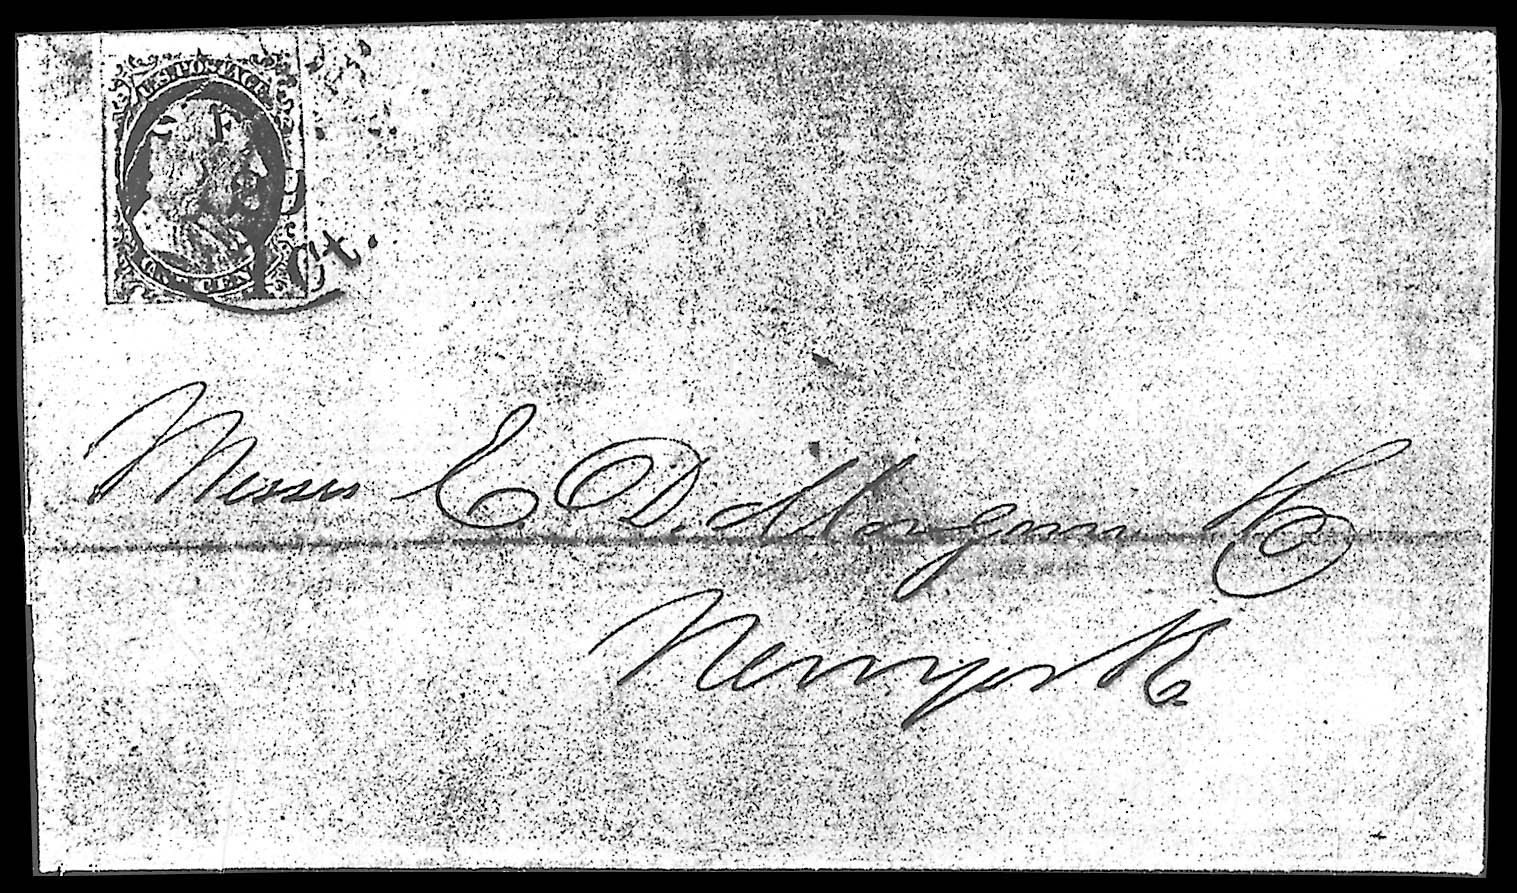 U.S. POSTAGE
ONE CENT
Ct.
Messrs E. D. Morgan & Co
New York